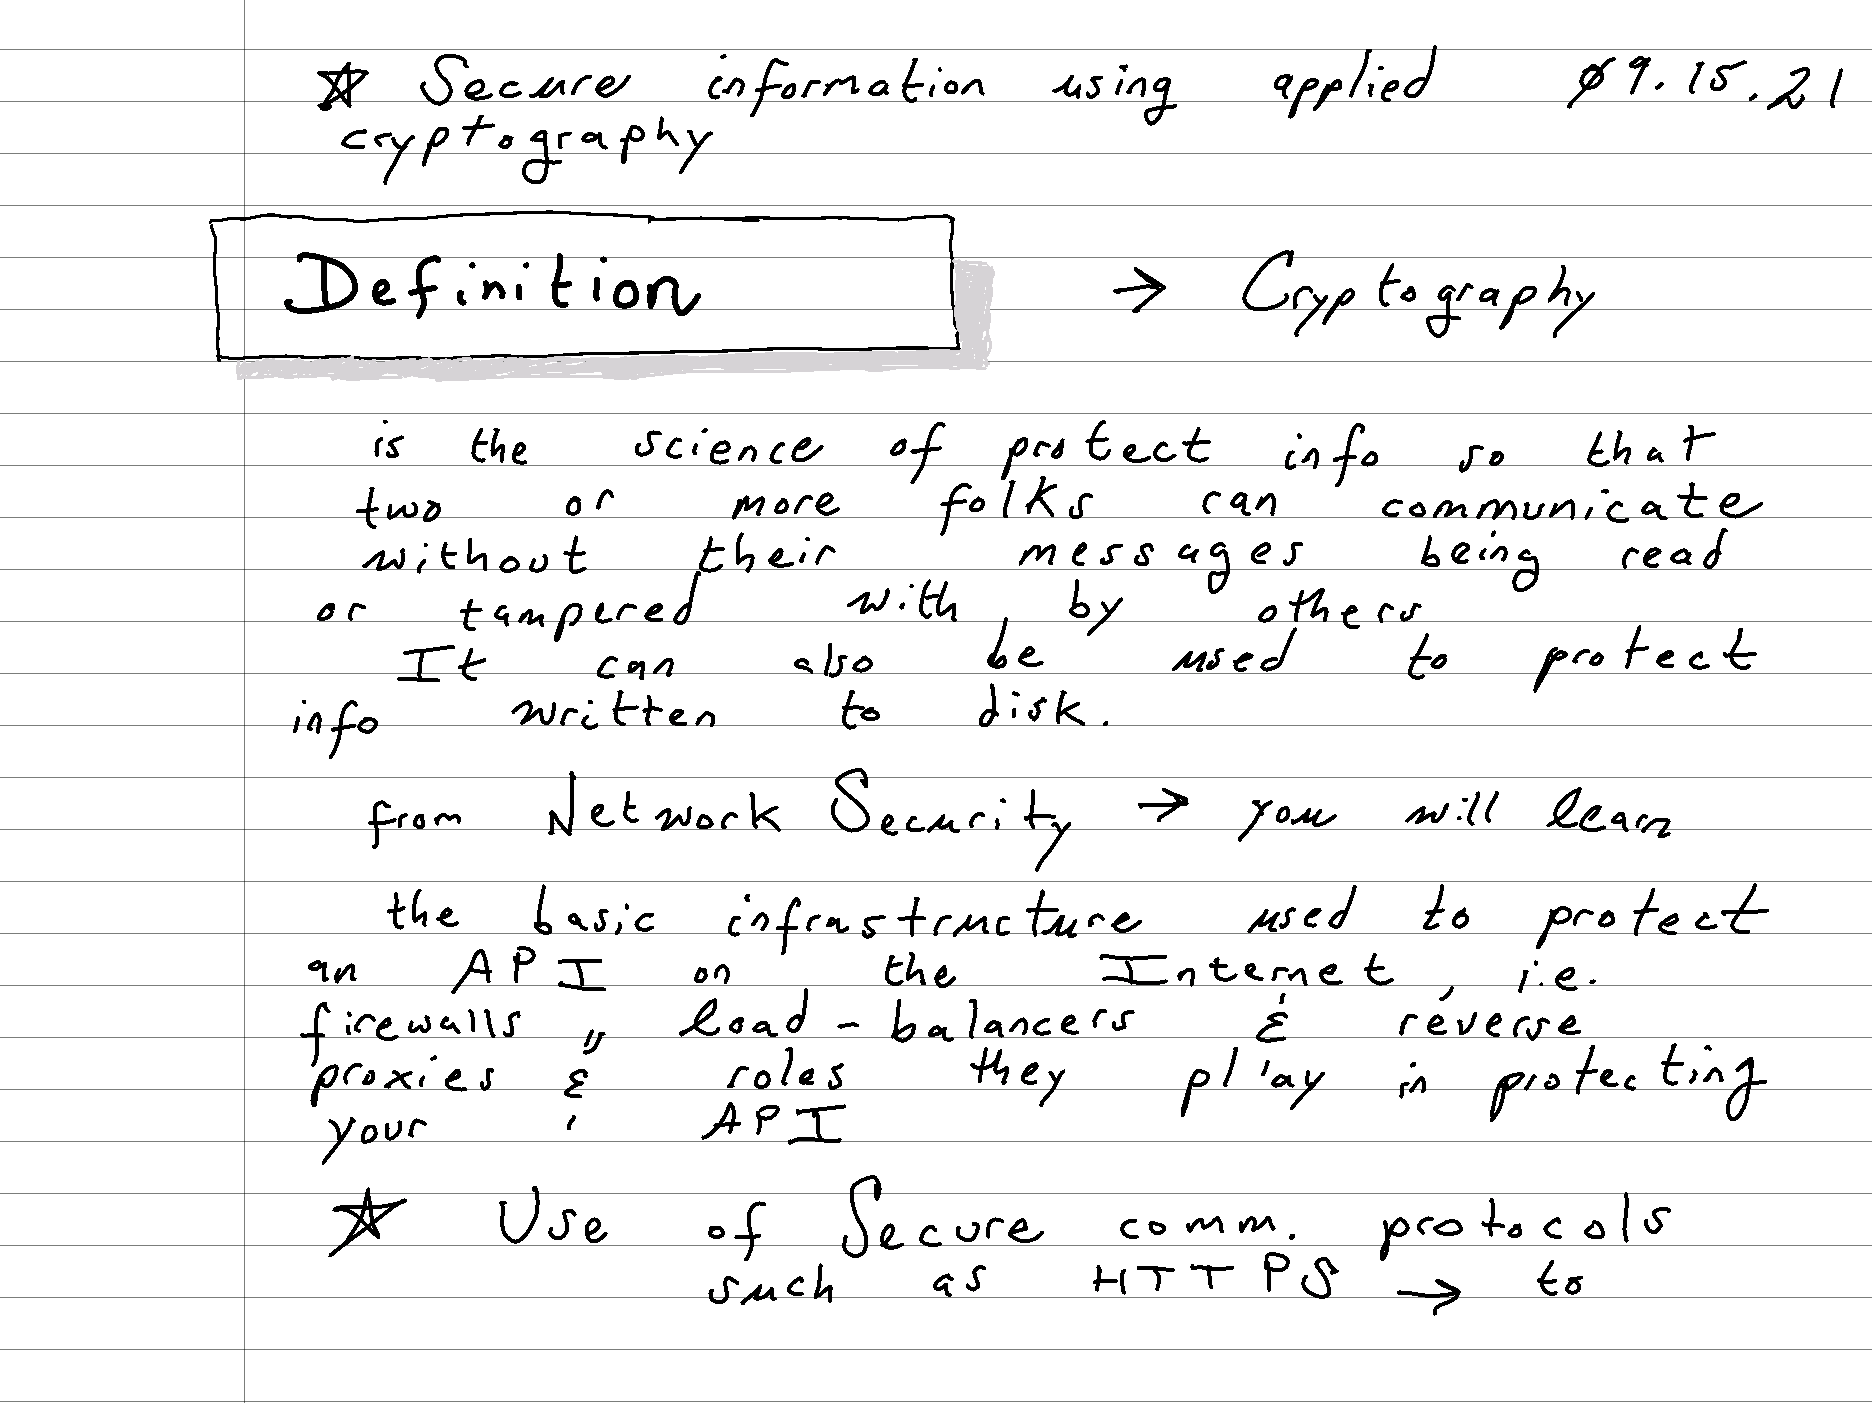 ☆ Secure information using applied Ø9.15.21
cryptography
Definition → Cryptography
is the science of protect info so that
two or more folks can communicate
without their messages being read
or tampered with by others
It can also be used to protect
info written to disk.
from Network Security → you will learn
the basic infrastructure used to protect
an API on the Internet, i.e.
firewalls, load-balancers & reverse
proxies & roles they play in protecting
your API
☆ Use of Secure comm. protocols
such as HTTPS → to